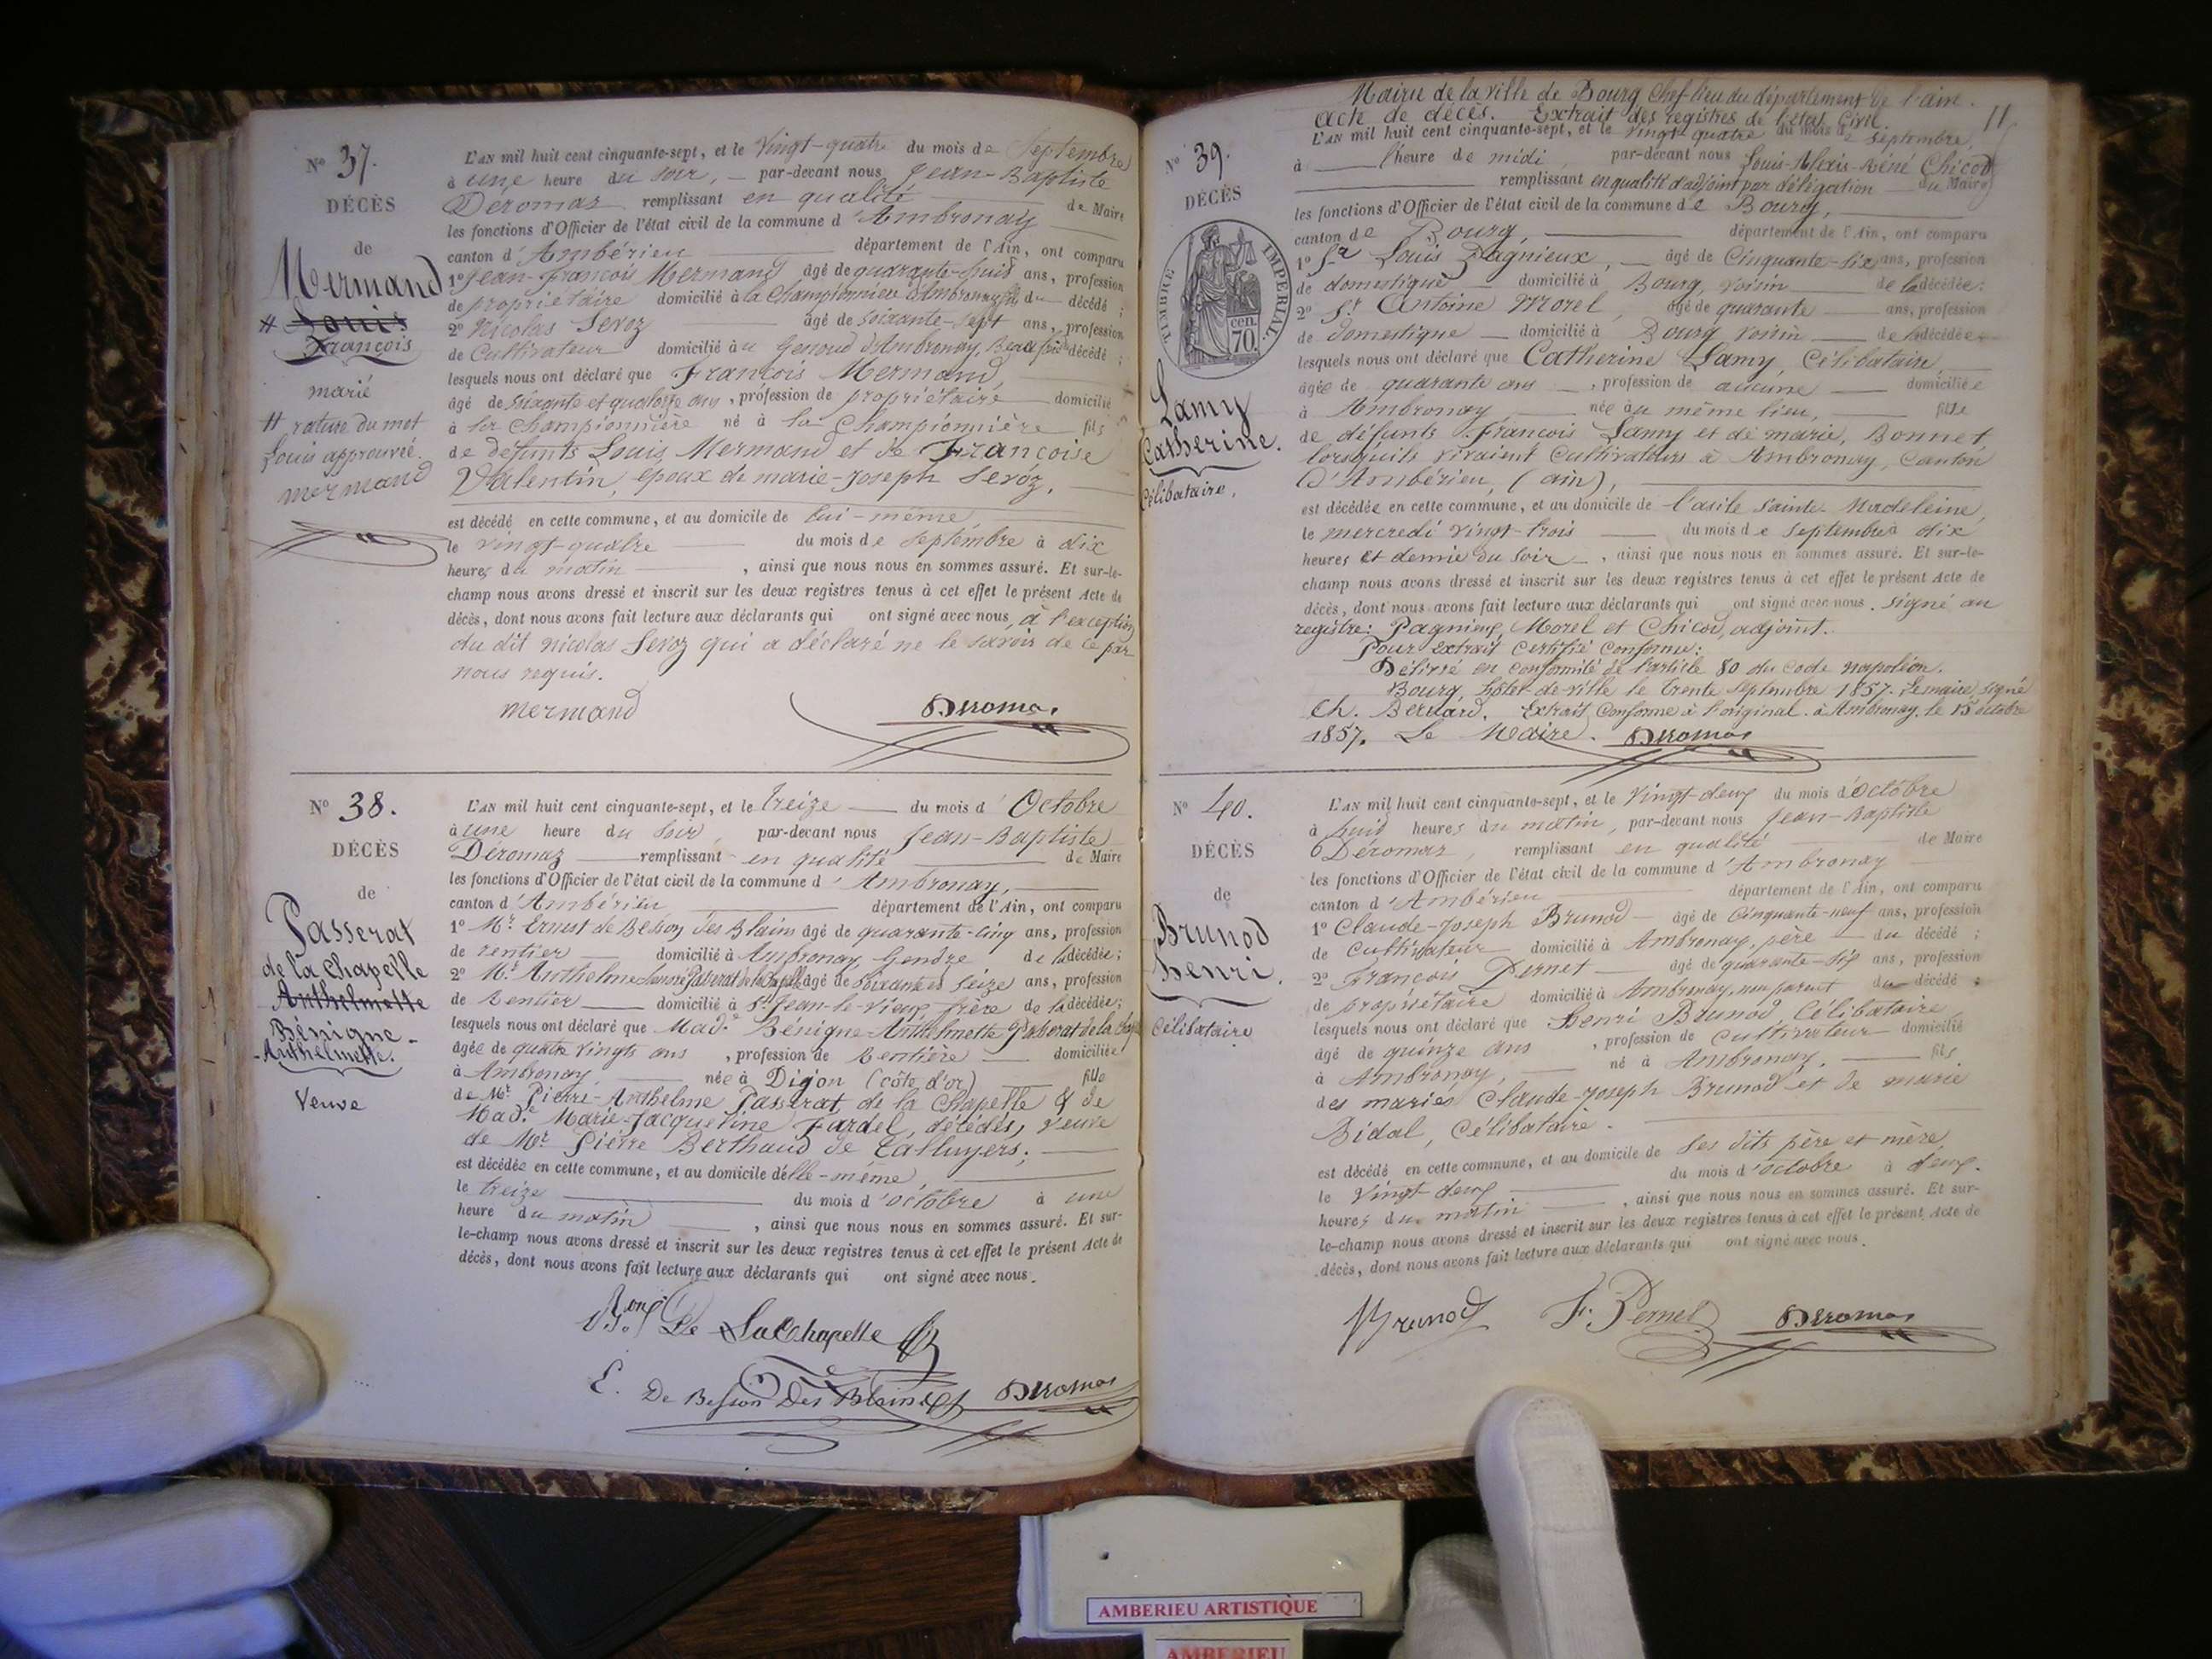 N° 37.
DÉCÈS
de
Mermand
# Louis
François
marié
# rature du mot
Louis approuvée.
mermand
L'AN mil huit cent cinquante-sept, et le Vingt-quatre du mois de Septembre
à une heure du soir, par-devant nous Jean-Baptiste
Deromaz remplissant en qualité de Maire
les fonctions d'Officier de l'état civil de la commune d'Ambronay
canton d'Ambérieu département de l'Ain, ont comparu
1° Jean-François Mermand âgé de quarante-huit ans, profession
de propriétaire domicilié à la Championnière d'Ambronay, fils du décédé;
2° Nicolas Seroz âgé de soixante-sept ans, profession
de Cultivateur domicilié au Genoud d'Ambronay, Beau frère décédé;
lesquels nous ont déclaré que François Mermand,
âgé de soixante et quatorze ans, profession de propriétaire domicilié
à la Championnière né à la Championnière fils
de défunts Louis Mermand et de Françoise
Valentin, époux de marie-Joseph Seroz,
est décédé en cette commune, et au domicile de lui-même
le vingt-quatre du mois de Septembre à dix
heures du matin, ainsi que nous nous en sommes assuré. Et sur-le-
champ nous avons dressé et inscrit sur les deux registres tenus à cet effet le présent Acte de
décès, dont nous avons fait lecture aux déclarants qui ont signé avec nous, à l'exception
du dit nicolas Seroz qui a déclaré ne le savoir de ce par
nous requis.
mermand Deromas
N° 38.
DÉCÈS
de
Passerat
de la Chapelle
Anthelmette
Bénigne-
-Anthelmette.
Veuve
L'AN mil huit cent cinquante-sept, et le treize du mois d'Octobre
à une heure du soir, par-devant nous Jean-Baptiste
Déromaz remplissant en qualité de Maire
les fonctions d'Officier de l'état civil de la commune d'Ambronay,
canton d'Ambérieu département de l'Ain, ont comparu
1° Mr Ernest de Besson des Blains âgé de quarante-cinq ans, profession
de rentier domicilié à Ambronay, Gendre de la décédée;
2° Mr Anthelme Passerat de la Chapelle âgé de soixante et seize ans, profession
de Rentier domicilié à St Jean-le-Vieux, frère de la décédée;
lesquels nous ont déclaré que Made Bénigne-Anthelmette Passerat de la Chap
âgée de quatre vingts ans, profession de Rentière domiciliée
à Ambronay, née à Dijon (côte d'or) fille
de Mr Pierre-Anthelme Passerat de la Chapelle & de
Made Marie-Jacqueline Fardel, décédés, veuve
de Mr Pierre Berthaud de Talluyers;
est décédée en cette commune, et au domicile d'elle-même,
le treize du mois d'octobre à une
heure du matin, ainsi que nous nous en sommes assuré. Et sur-
le-champ nous avons dressé et inscrit sur les deux registres tenus à cet effet le présent Acte de
décès, dont nous avons fait lecture aux déclarants qui ont signé avec nous.
De LaChapelle
E. De Besson Des Blains Deromas
Mairie de la ville de Bourg Chef lieu du département de l'ain.
acte de décès. Extrait des registres de l'état Civil
11
N° 39.
DÉCÈS
TIMBRE IMPERIAL.
cen.
70.
Lamy
Catherine.
Célibataire.
L'AN mil huit cent cinquante-sept, et le vingt quatre du mois de septembre,
à l'heure de midi, par-devant nous Louis-Alexis-Réné Chicod
remplissant en qualité d'adjoint par délégation du Maire
les fonctions d'Officier de l'état civil de la commune de Bourg,
canton de Bourg, département de l'Ain, ont comparu
1° Sr Louis Pagnieux, âgé de Cinquante-six ans, profession
de domestique domicilié à Bourg, voisin de la décédée;
2° Sr Antoine Morel, âgé de quarante ans, profession
de domestique domicilié à Bourg voisin de la décédée
lesquels nous ont déclaré que Catherine Lamy, Célibataire,
âgée de quarante ans, profession de aucune domiciliée
à Ambronay, née au même lieu, fille
de défunts François Lamy et de marie, Bonnet,
lorsqu'ils vivaient Cultivateurs à Ambronay, Canton
d'Ambérieu, (ain),
est décédée en cette commune, et au domicile de l'asile Sainte-Madeleine,
le mercredi vingt-trois du mois de septembre à dix
heures et demie du soir, ainsi que nous nous en sommes assuré. Et sur-le-
champ nous avons dressé et inscrit sur les deux registres tenus à cet effet le présent Acte de
décès, dont nous avons fait lecture aux déclarants qui ont signé avec nous. Signé au
registre: Pagnieux, Morel et Chicod, adjoint.
Pour extrait Certifié Conforme:
Délivré en conformité de l'article 80 du Code napoléon.
Bourg, hôtel-de-ville le trente Septembre 1857. Le maire, signé
Ch. Bernard. Extrait Conforme à l'original. à Ambronay, le 15 octobre
1857. Le Maire. Deromas
N° 40.
DÉCÈS
de
Brunod
henri.
Célibataire
L'AN mil huit cent cinquante-sept, et le Vingt-deux du mois d'Octobre
à huit heures du matin, par-devant nous Jean-Baptiste
Déromas, remplissant en qualité de Maire
les fonctions d'Officier de l'état civil de la commune d'Ambronay
canton d'Ambérieu département de l'Ain, ont comparu
1° Claude-Joseph Brunod âgé de Cinquante-neuf ans, profession
de Cultivateur domicilié à Ambronay, père du décédé;
2° François Pernet âgé de quarante-six ans, profession
de propriétaire domicilié à Ambronay, non parent du décédé;
lesquels nous ont déclaré que henri Brunod, Célibataire
âgé de quinze ans, profession de Cultivateur domicilié
à Ambronay, né à Ambronay, fils
des mariés Claude-Joseph Brunod et de marie
Bidal, Célibataire.
est décédé en cette commune, et au domicile de ses dits père et mère,
le Vingt-deux du mois d'octobre à deux
heures du matin, ainsi que nous nous en sommes assuré. Et sur-
le-champ nous avons dressé et inscrit sur les deux registres tenus à cet effet le présent Acte de
décès, dont nous avons fait lecture aux déclarants qui ont signé avec nous.
Brunod F. Pernet Deromas
AMBERIEU ARTISTIQUE
AMBERIEU